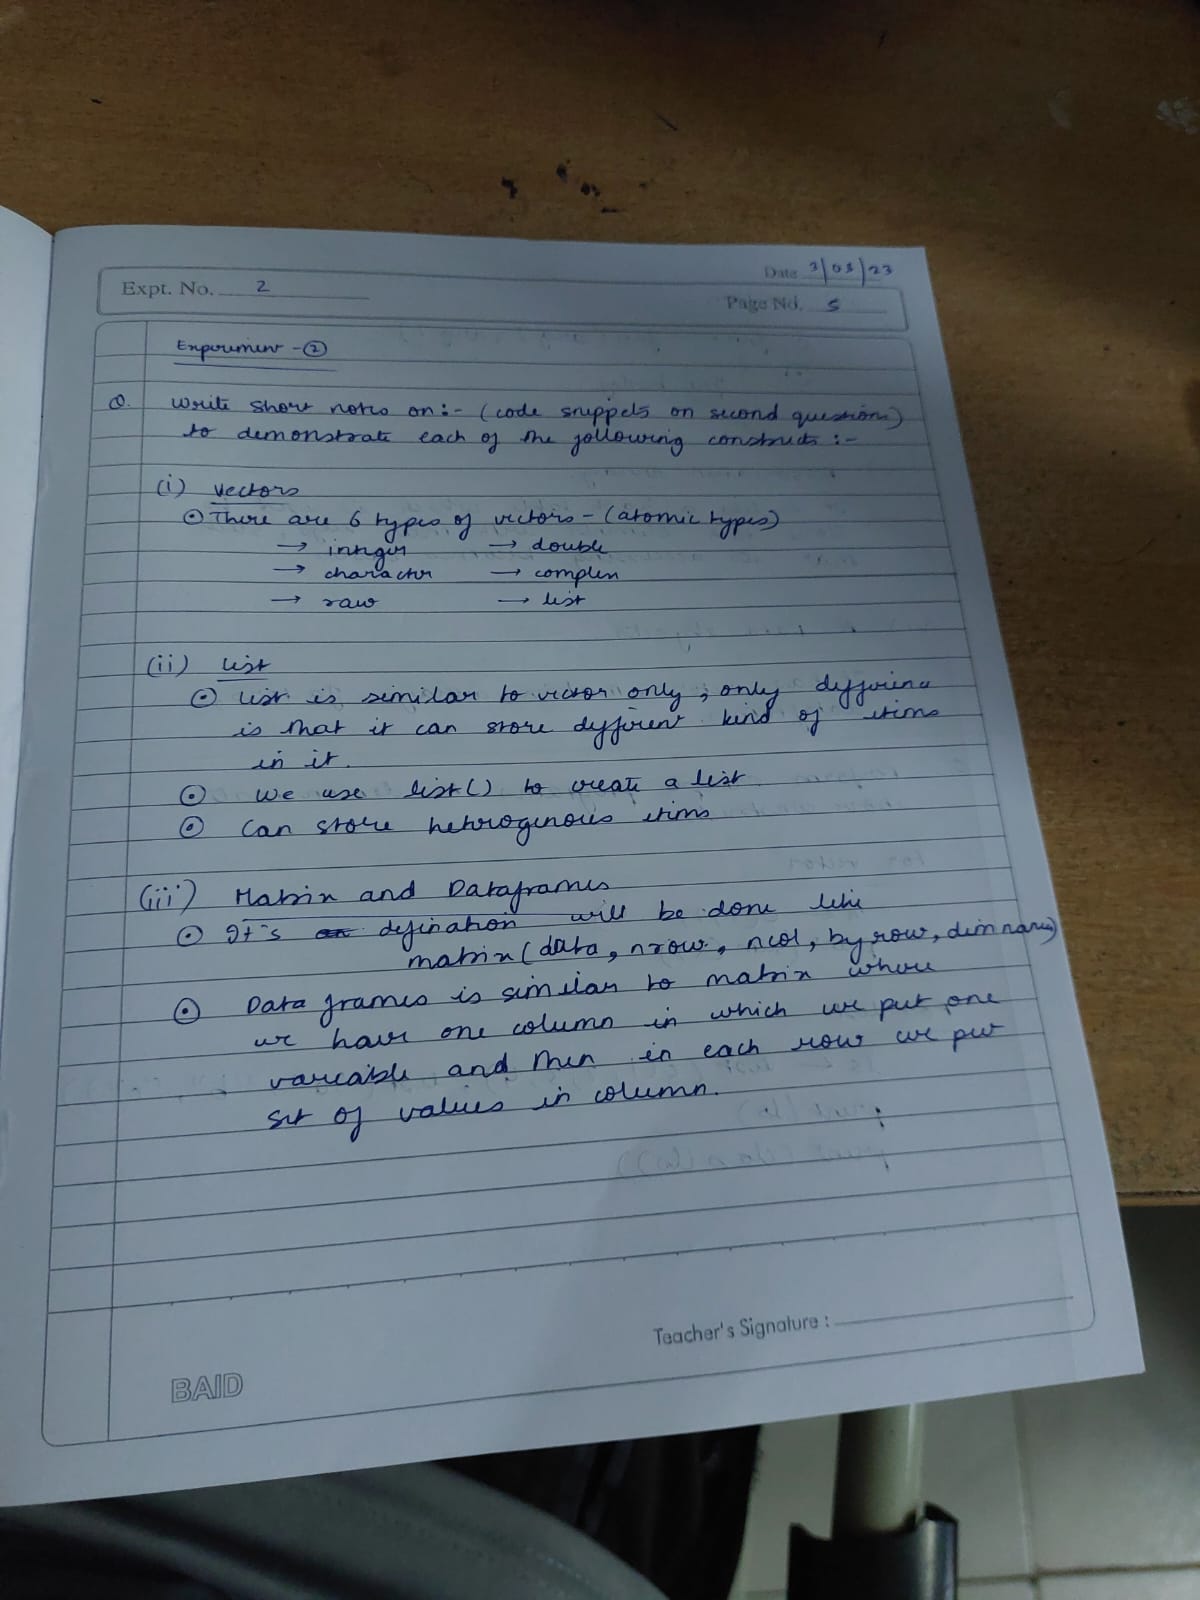 Date 3/03/23
Expt. No. 2
Page No. 5
Experiment - ②
Q. Write short notes on :- (code snippets on second questions)
to demonstrate each of the following constructs :-
(i) Vectors
⊙ There are 6 types of vectors - (atomic types)
→ integer → double
→ character → complex
→ raw → list
(ii) List
⊙ List is similar to vector only, only difference
is that it can store different kind of items
in it.
⊙ We use list() to create a list
⊙ Can store hetrogenous items
(iii) Matrix and Dataframes
⊙ It's defination will be done like
matrix (data, nrow, ncol, byrow, dimnames)
⊙ Data frames is similar to matrix where
we have one column in which we put one
variable and then in each row we put
set of values in column.
Teacher's Signature :
BAID